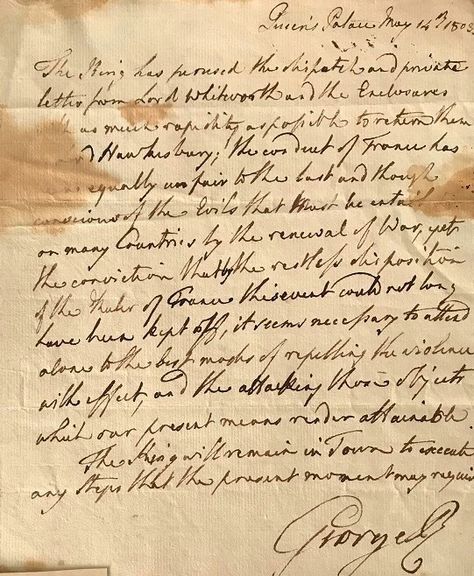 Queen's Palace May 14th 1803
The King has perused the dispatch and private
letter from Lord Whitworth and the Enclosures
as much rapidity as possible to return them
Hawkesbury; the conduct of France has
equally unfair to the last and though
conscious of the Evils that must be entail
on many Countries by the renewal of War, yet
the conviction that by the restless disposition
of the Ruler of France this event could not long
have been kept off, it seems necessary to attend
alone to the best modes of repelling the violence
with effect, and the attacking those objects
which our present means render attainable.
The King will remain in Town to execute
any Steps that the present moment may require
George R